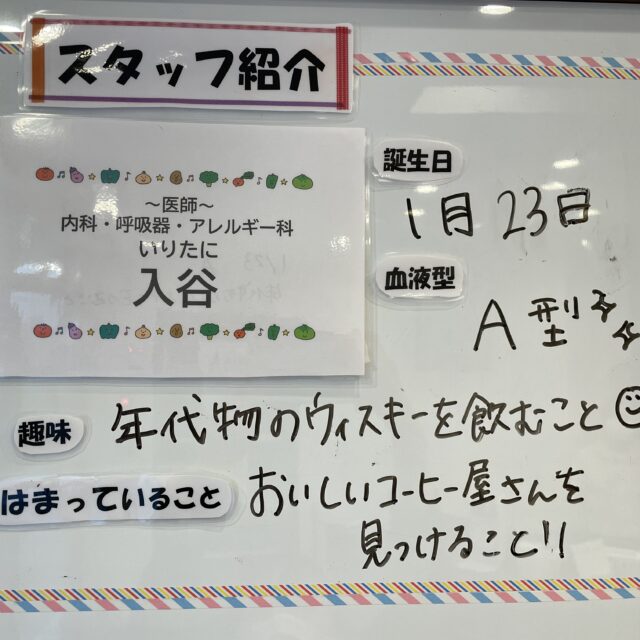 スタッフ紹介
～医師～
内科・呼吸器・アレルギー科
いりたに
入谷
誕生日
1月23日
血液型
A型
趣味
年代物のウィスキーを飲むこと
はまっていること
おいしいコーヒー屋さんを
見つけること!!